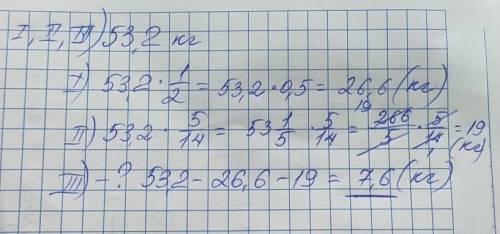 I, II, III) 53,2 кг
I) 53,2 · 1/2 = 53,2 · 0,5 = 26,6 (кг)
II) 53,2 · 5/14 = 53 1/5 · 5/14 = 266/5 · 5/14 = 19 (кг)
19
1
III) - ? 53,2 - 26,6 - 19 = 7,6 (кг)